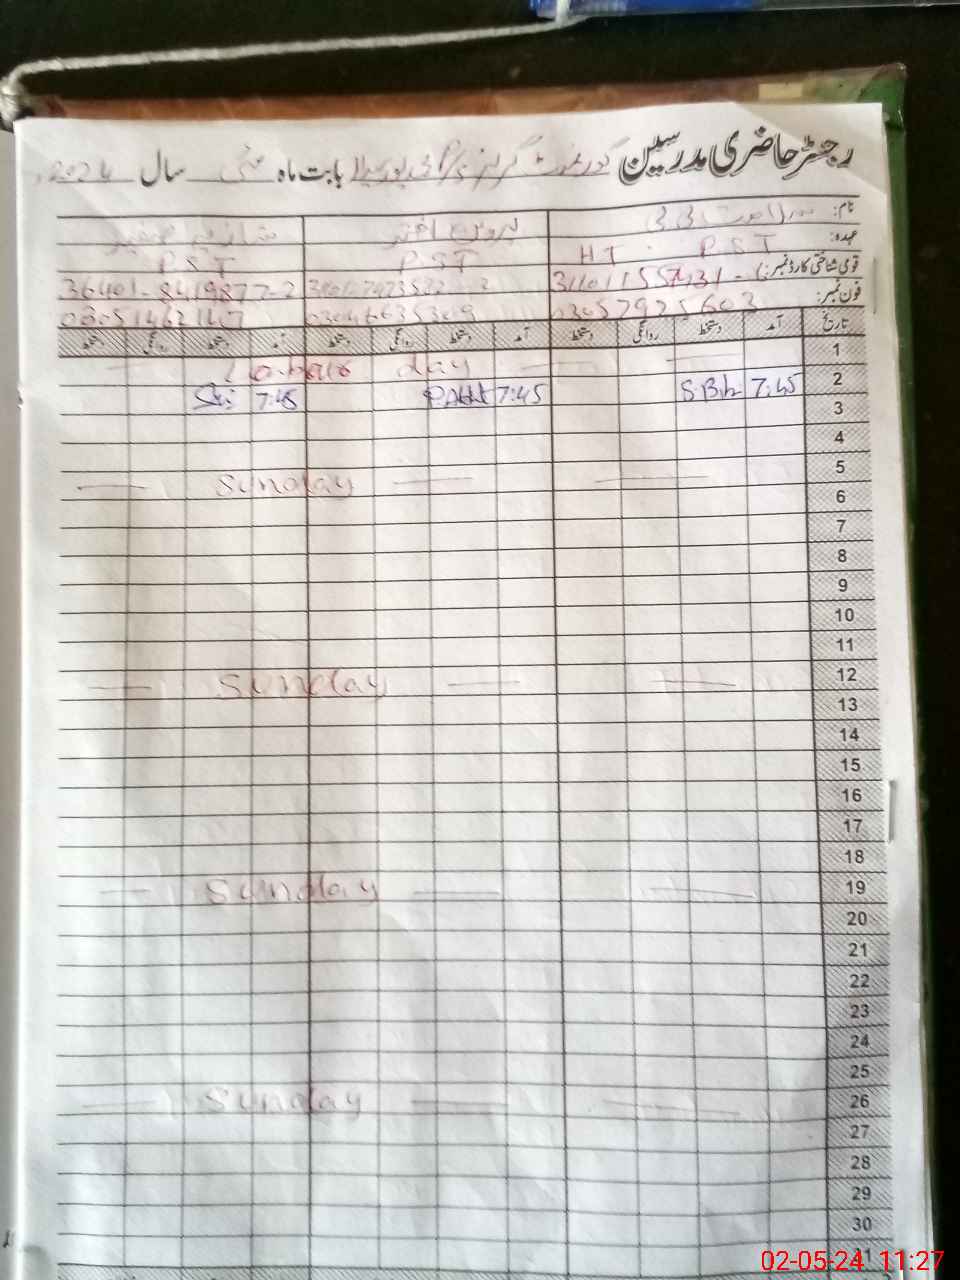 رجسٹر حاضری مدرسین گورنمنٹ گرلز بابت ماہ مئی سال 2024
نام: سلامت بی بی پروین اختر شازیہ
عہدہ: P.S.T HT P.ST P.S.T
قومی شناختی کارڈ نمبر: 36401-8419877-2
فون نمبر: 03057925603 03051462147
تاریخ آمد دستخط روانگی دستخط آمد دستخط روانگی دستخط آمد دستخط روانگی دستخط
1 Labour day
2 7:45 S.Bibi 7:45 P.Akht 7:45
3
4
5 Sunday
6
7
8
9
10
11
12 Sunday
13
14
15
16
17
18
19 Sunday
20
21
22
23
24
25
26 Sunday
27
28
29
30
02-05-24 11:27